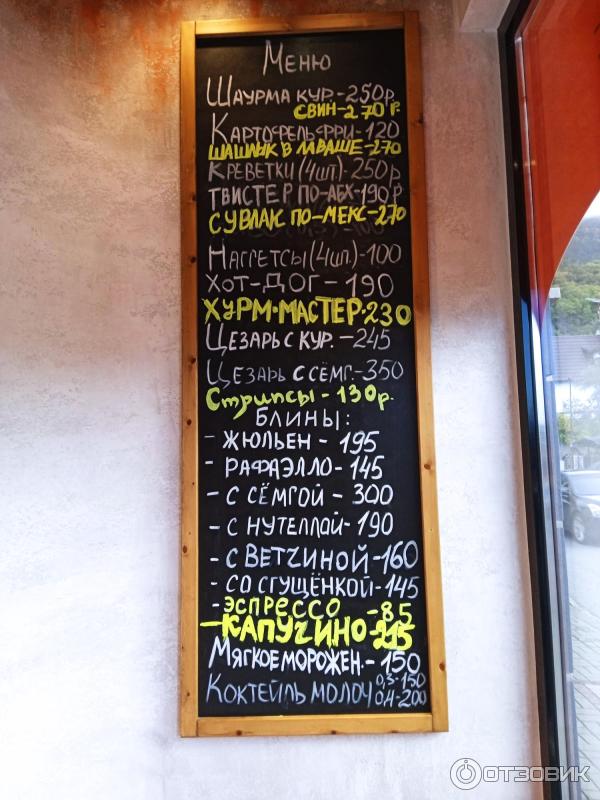 Меню
Шаурма кур - 250р
свин - 270р.
Картофель фри - 120
шашлык в лаваше - 270
Креветки (4шт.) - 250р
Твистер по-абх - 190р
Сувлак по-мекс - 270
Наггетсы (4шт.) - 100
Хот-дог - 190
Хурм-мастер - 230
Цезарь с кур. - 245
Цезарь с сёмг. - 350
Стрипсы - 130р.
Блины:
- жюльен - 195
- рафаэлло - 145
- с сёмгой - 300
- с нутеллой - 190
- с ветчиной - 160
- со сгущёнкой - 145
- эспрессо - 85
- капучино - 215
Мягкое морожен. - 150
Коктейль молоч 0,3-150
0,4-200
ОТЗОВИК